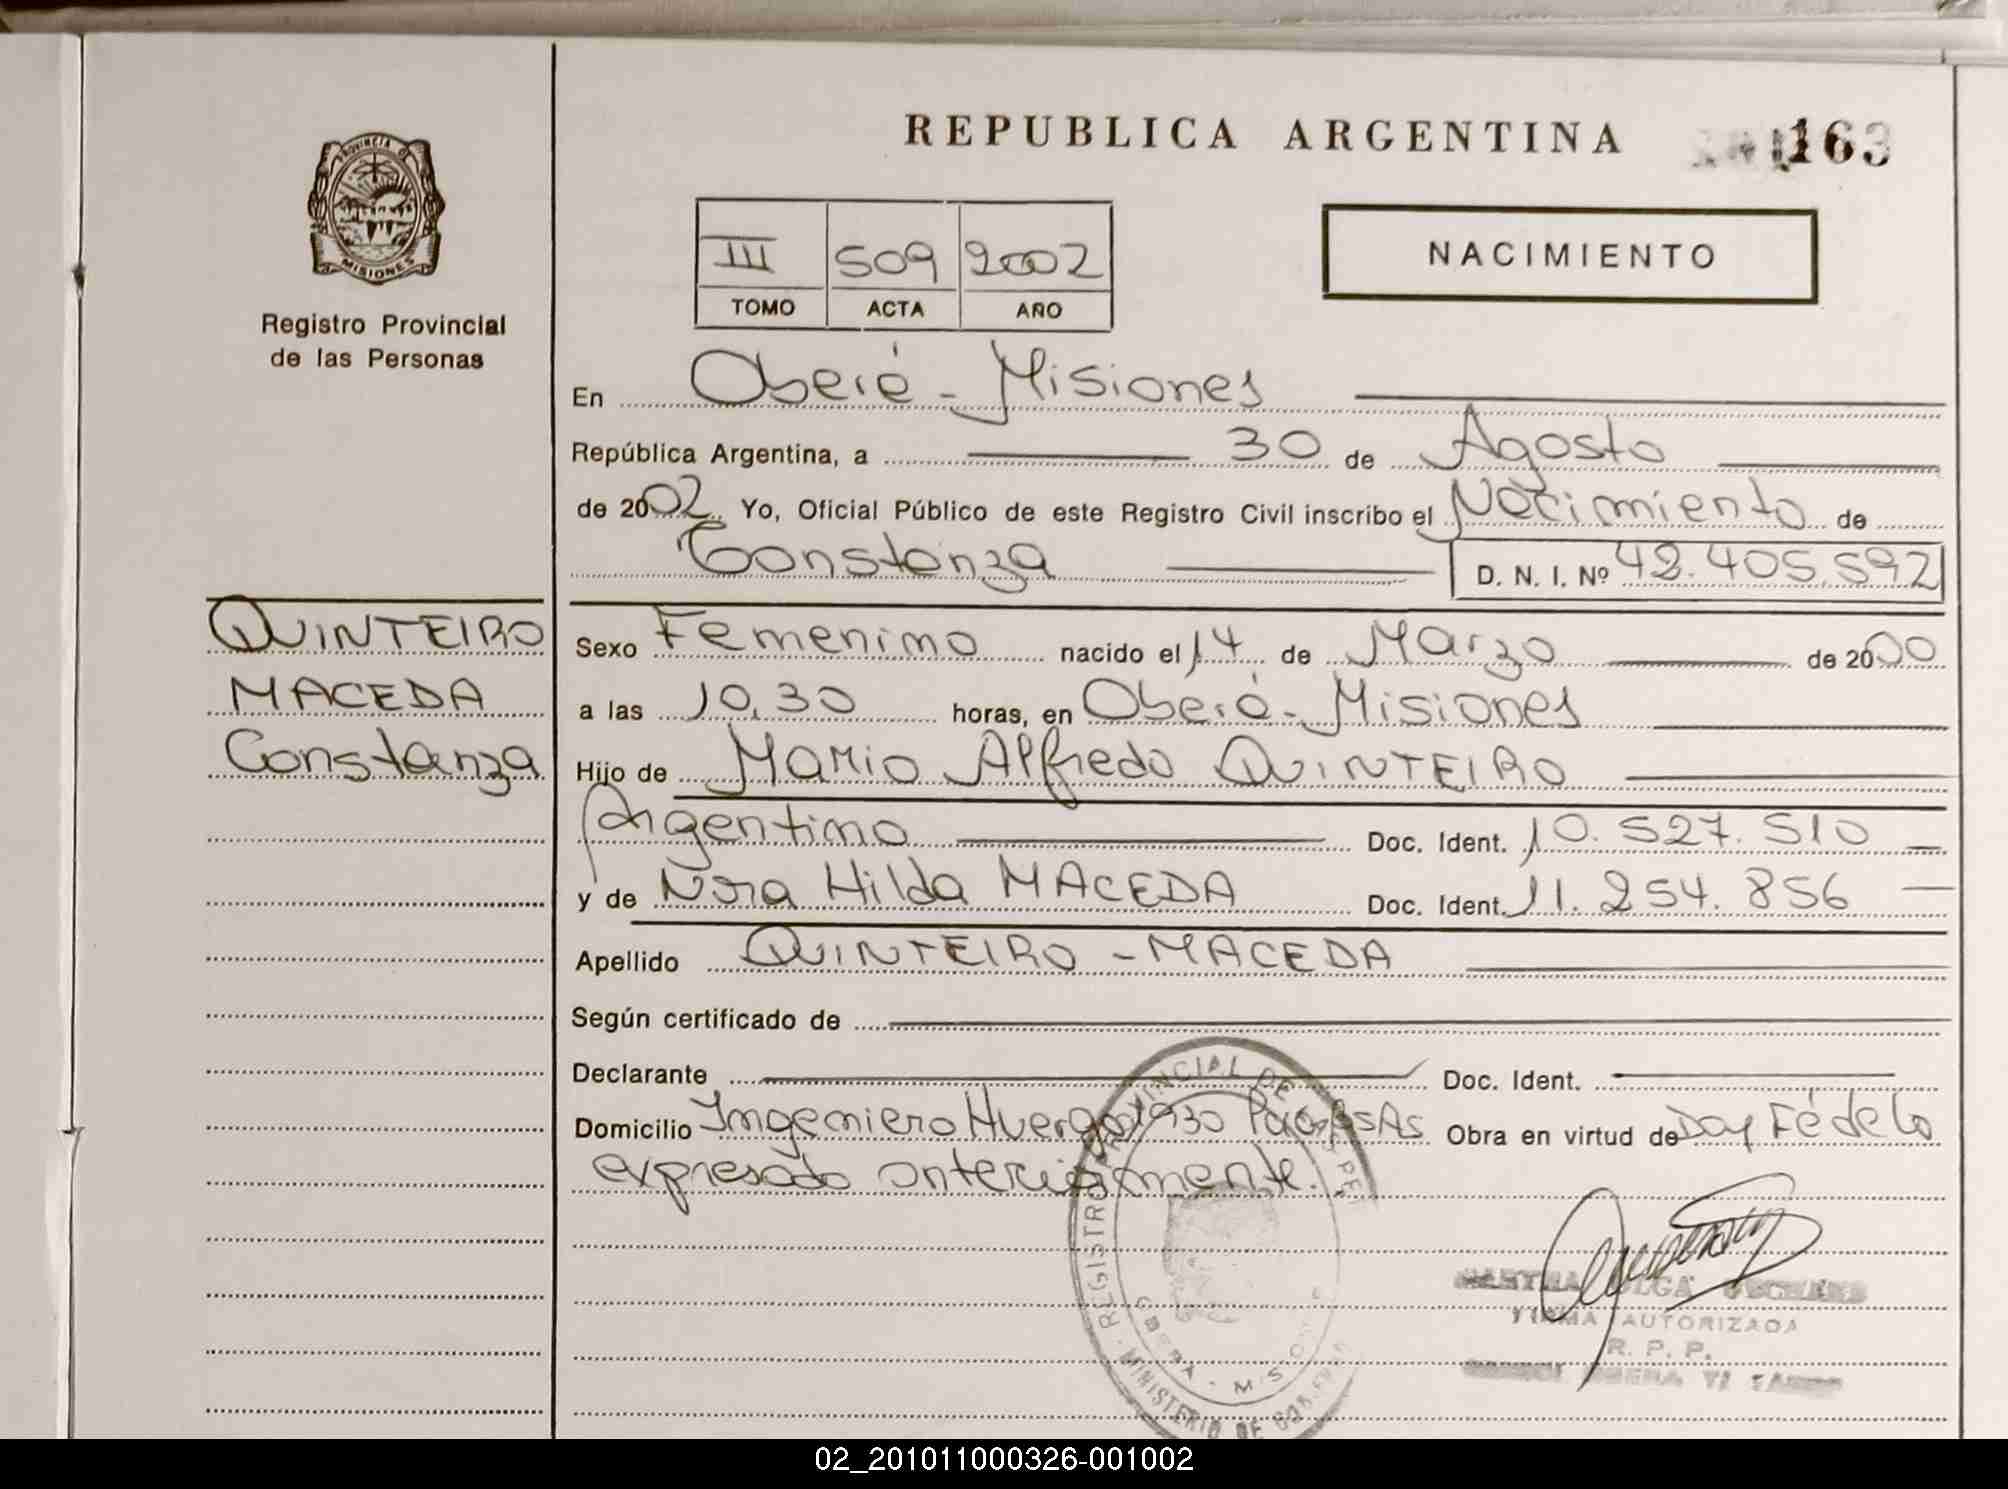 REPUBLICA ARGENTINA
163
PROVINCIA DE
MISIONES
Registro Provincial
de las Personas
NACIMIENTO
III 509 2002
TOMO ACTA AÑO
En Oberá - Misiones
República Argentina, a 30 de Agosto
de 2002 Yo, Oficial Público de este Registro Civil inscribo el Nacimiento de
Constanza D. N. I. Nº 42.405.592
QUINTEIRO
MACEDA
Constanza
Sexo Femenino nacido el 14 de Marzo de 2000
a las 10,30 horas, en Oberá - Misiones
Hijo de Mario Alfredo QUINTEIRO
Argentino Doc. Ident. 10.527.510
y de Nora Hilda MACEDA Doc. Ident. 11.254.856
Apellido QUINTEIRO - MACEDA
Según certificado de
Declarante Doc. Ident.
Domicilio Ingeniero Huergo 1930 BsAs Obra en virtud de Doy Fé de lo
expresado anteriormente.
REGISTRO PROVINCIAL DE
OBERA - MISIONES
MINISTERIO DE GOBIERNO
MARTHA OLGA
FIRMA AUTORIZADA
R. P. P.
OBERA
02_201011000326-001002